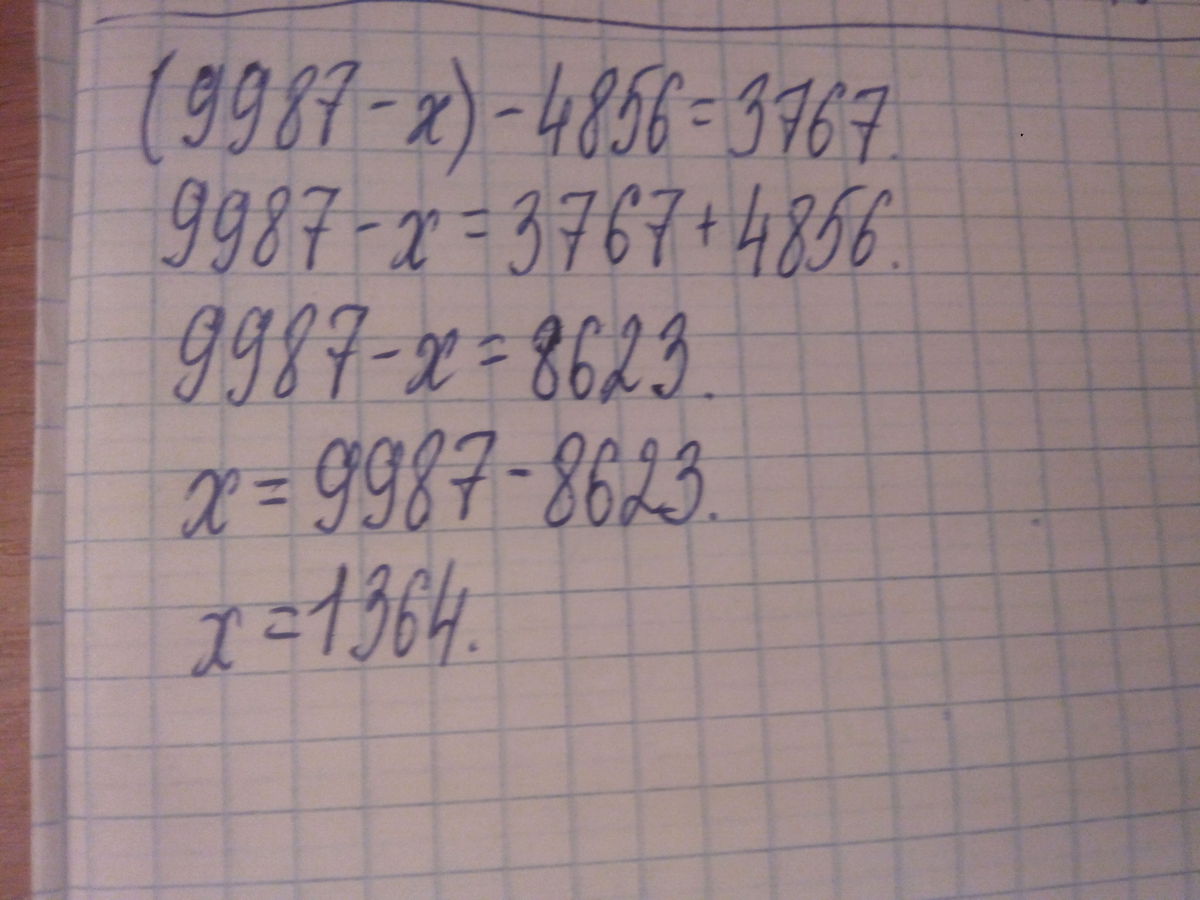 (9987 - x) - 4856 = 3767.
9987 - x = 3767 + 4856.
9987 - x = 8623.
x = 9987 - 8623.
x = 1364.